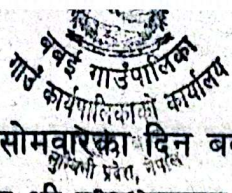 बबई गाउँपालिका
गाउँ कार्यपालिकाको कार्यालय
सोमवारका दिन
लुम्बिनी प्रदेश, नेपाल